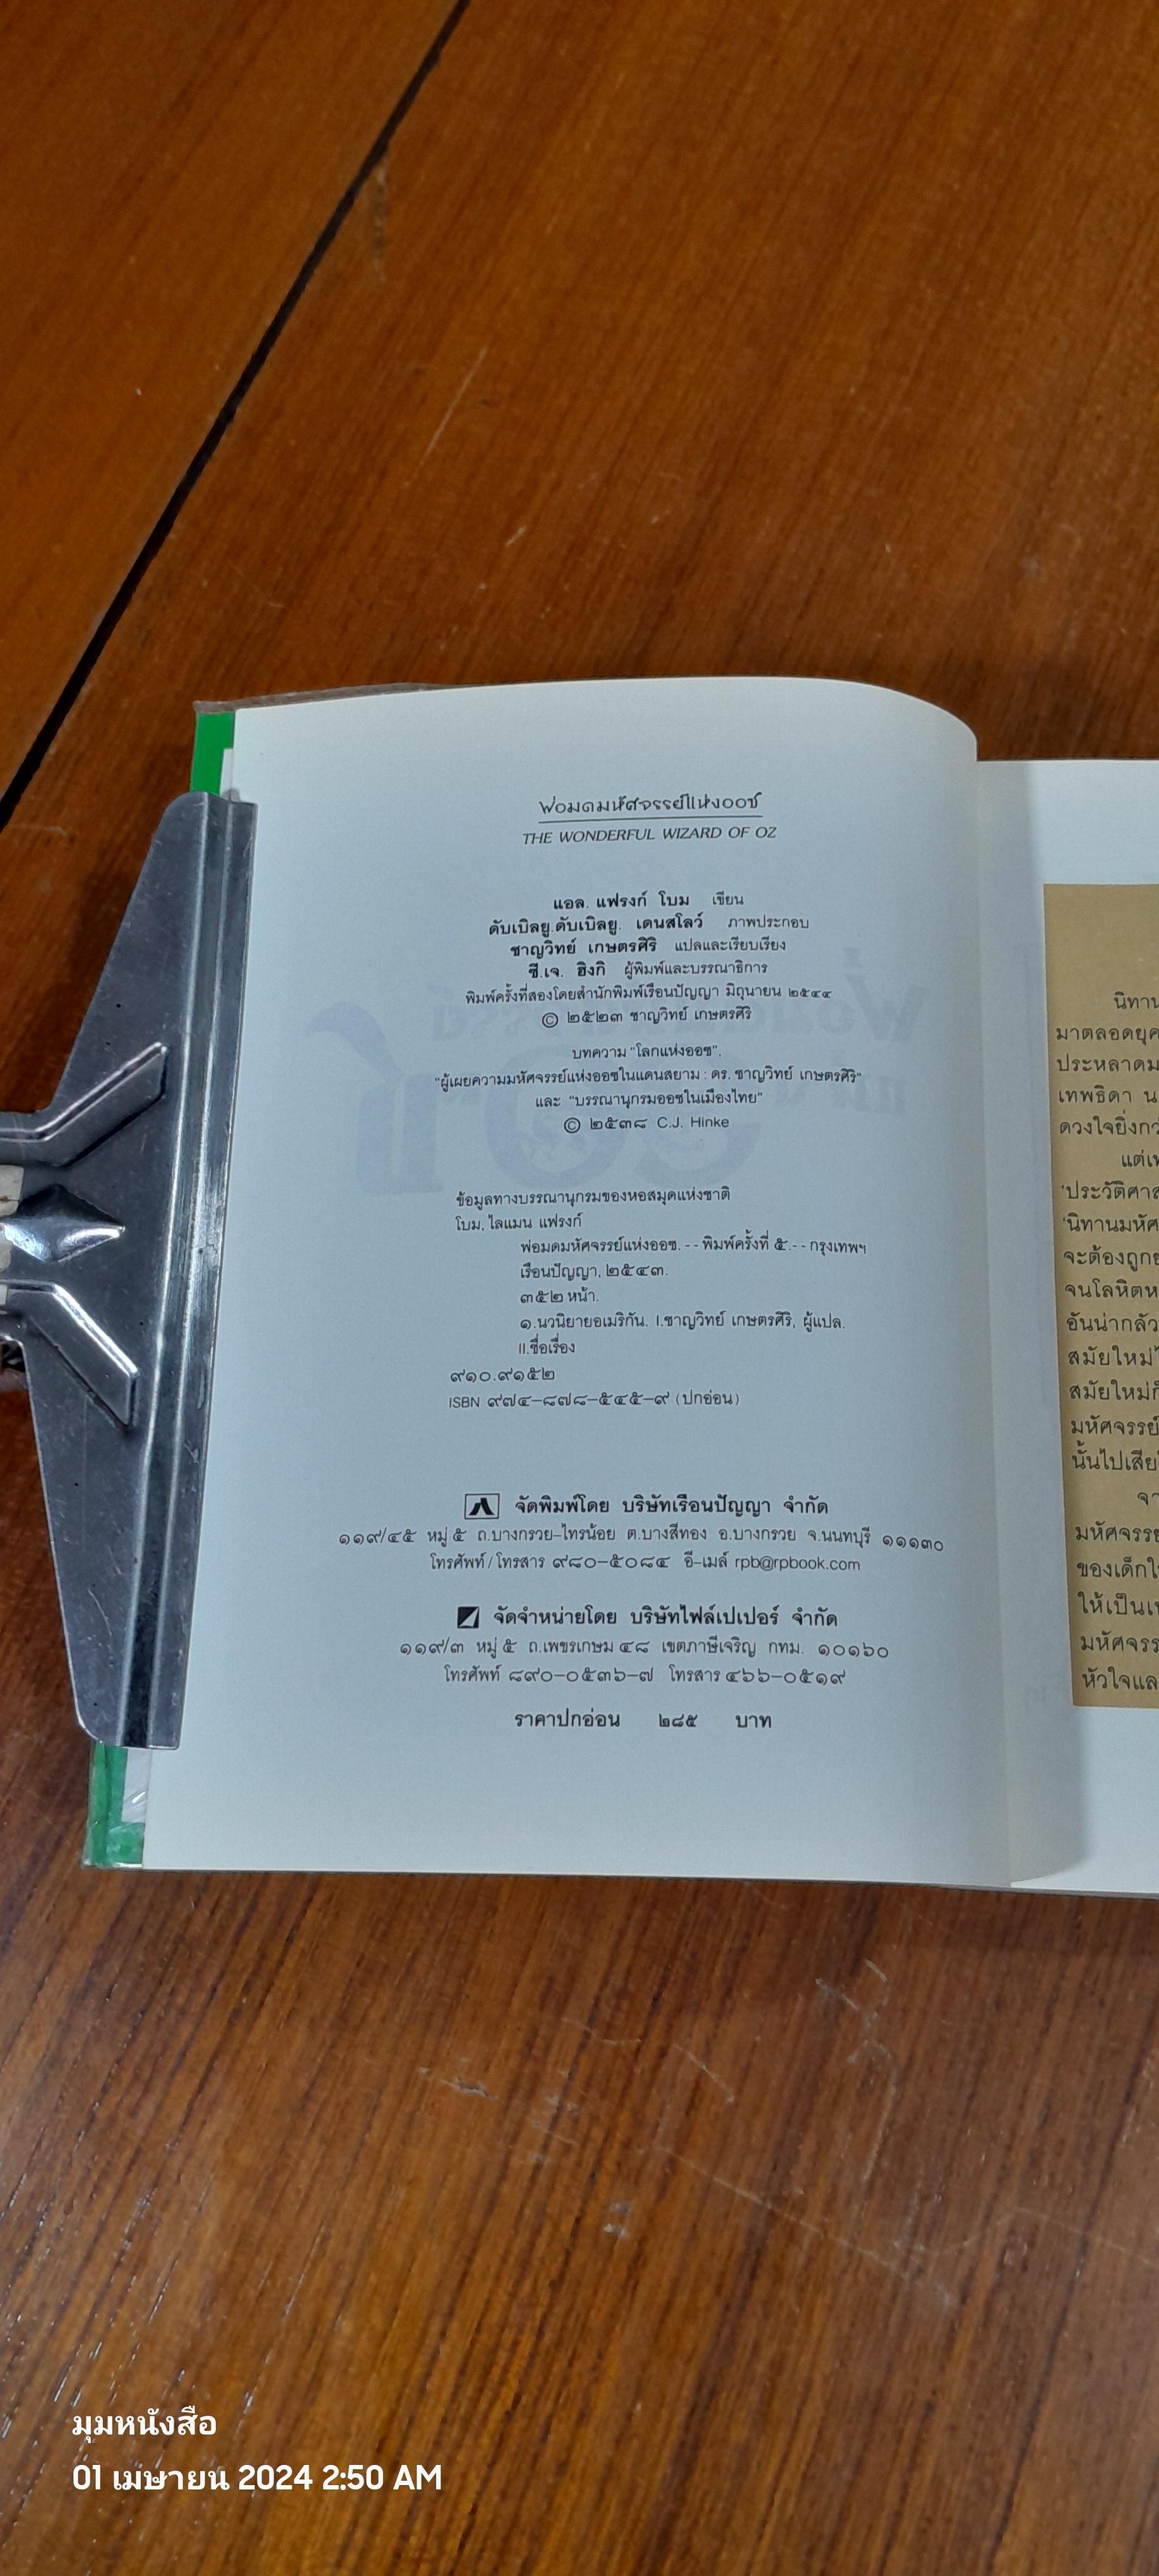 พ่อมดมหัศจรรย์แห่งออซ
THE WONDERFUL WIZARD OF OZ
แอล. แฟรงก์ โบม เขียน
ดับเบิลยู.ดับเบิลยู. เดนสโลว์ ภาพประกอบ
ชาญวิทย์ เกษตรศิริ แปลและเรียบเรียง
ซี.เจ. ฮิงกิ ผู้พิมพ์และบรรณาธิการ
พิมพ์ครั้งที่สองโดยสำนักพิมพ์เรือนปัญญา มิถุนายน ๒๕๔๔
© ๒๕๒๓ ชาญวิทย์ เกษตรศิริ
บทความ "โลกแห่งออซ",
"ผู้เผยความมหัศจรรย์แห่งออซในแดนสยาม : ดร. ชาญวิทย์ เกษตรศิริ"
และ "บรรณานุกรมออซในเมืองไทย"
© ๒๕๓๘ C.J. Hinke
ข้อมูลทางบรรณานุกรมของหอสมุดแห่งชาติ
โบม, ไลแมน แฟรงก์
พ่อมดมหัศจรรย์แห่งออซ. - - พิมพ์ครั้งที่ ๕.- - กรุงเทพฯ
เรือนปัญญา, ๒๕๔๓.
๓๕๒ หน้า.
๑.นวนิยายอเมริกัน. I.ชาญวิทย์ เกษตรศิริ, ผู้แปล.
II.ชื่อเรื่อง
๙๑๐.๙๑๕๒
ISBN ๙๗๔-๘๗๘-๕๔๕-๙ (ปกอ่อน)
จัดพิมพ์โดย บริษัทเรือนปัญญา จำกัด
๑๑๙/๔๕ หมู่ ๕ ถ.บางกรวย-ไทรน้อย ต.บางสีทอง อ.บางกรวย จ.นนทบุรี ๑๑๑๓๐
โทรศัพท์ / โทรสาร ๙๘๐-๕๐๘๔ อี-เมล์ rpb@rpbook.com
จัดจำหน่ายโดย บริษัทไฟล์เปเปอร์ จำกัด
๑๑๙/๓ หมู่ ๕ ถ.เพชรเกษม ๔๘ เขตภาษีเจริญ กทม. ๑๐๑๖๐
โทรศัพท์ ๘๙๐-๐๕๓๖-๗ โทรสาร ๔๖๖-๐๕๑๙
ราคาปกอ่อน ๒๘๕ บาท
นิทาน
มาตลอดยุค
ประหลาดม
เทพธิดา น
ดวงใจยิ่งกว
แต่เ
'ประวัติศา
'นิทานมหัศ
จะต้องถูก
จนโลหิตห
อันน่ากลัว
สมัยใหม่ไ
สมัยใหม่ก็
มหัศจรรย์
นั้นไปเสีย
จา
มหัศจรรย
ของเด็กใ
ให้เป็นเ
มหัศจรร
หัวใจแล
มุมหนังสือ
01 เมษายน 2024 2:50 AM